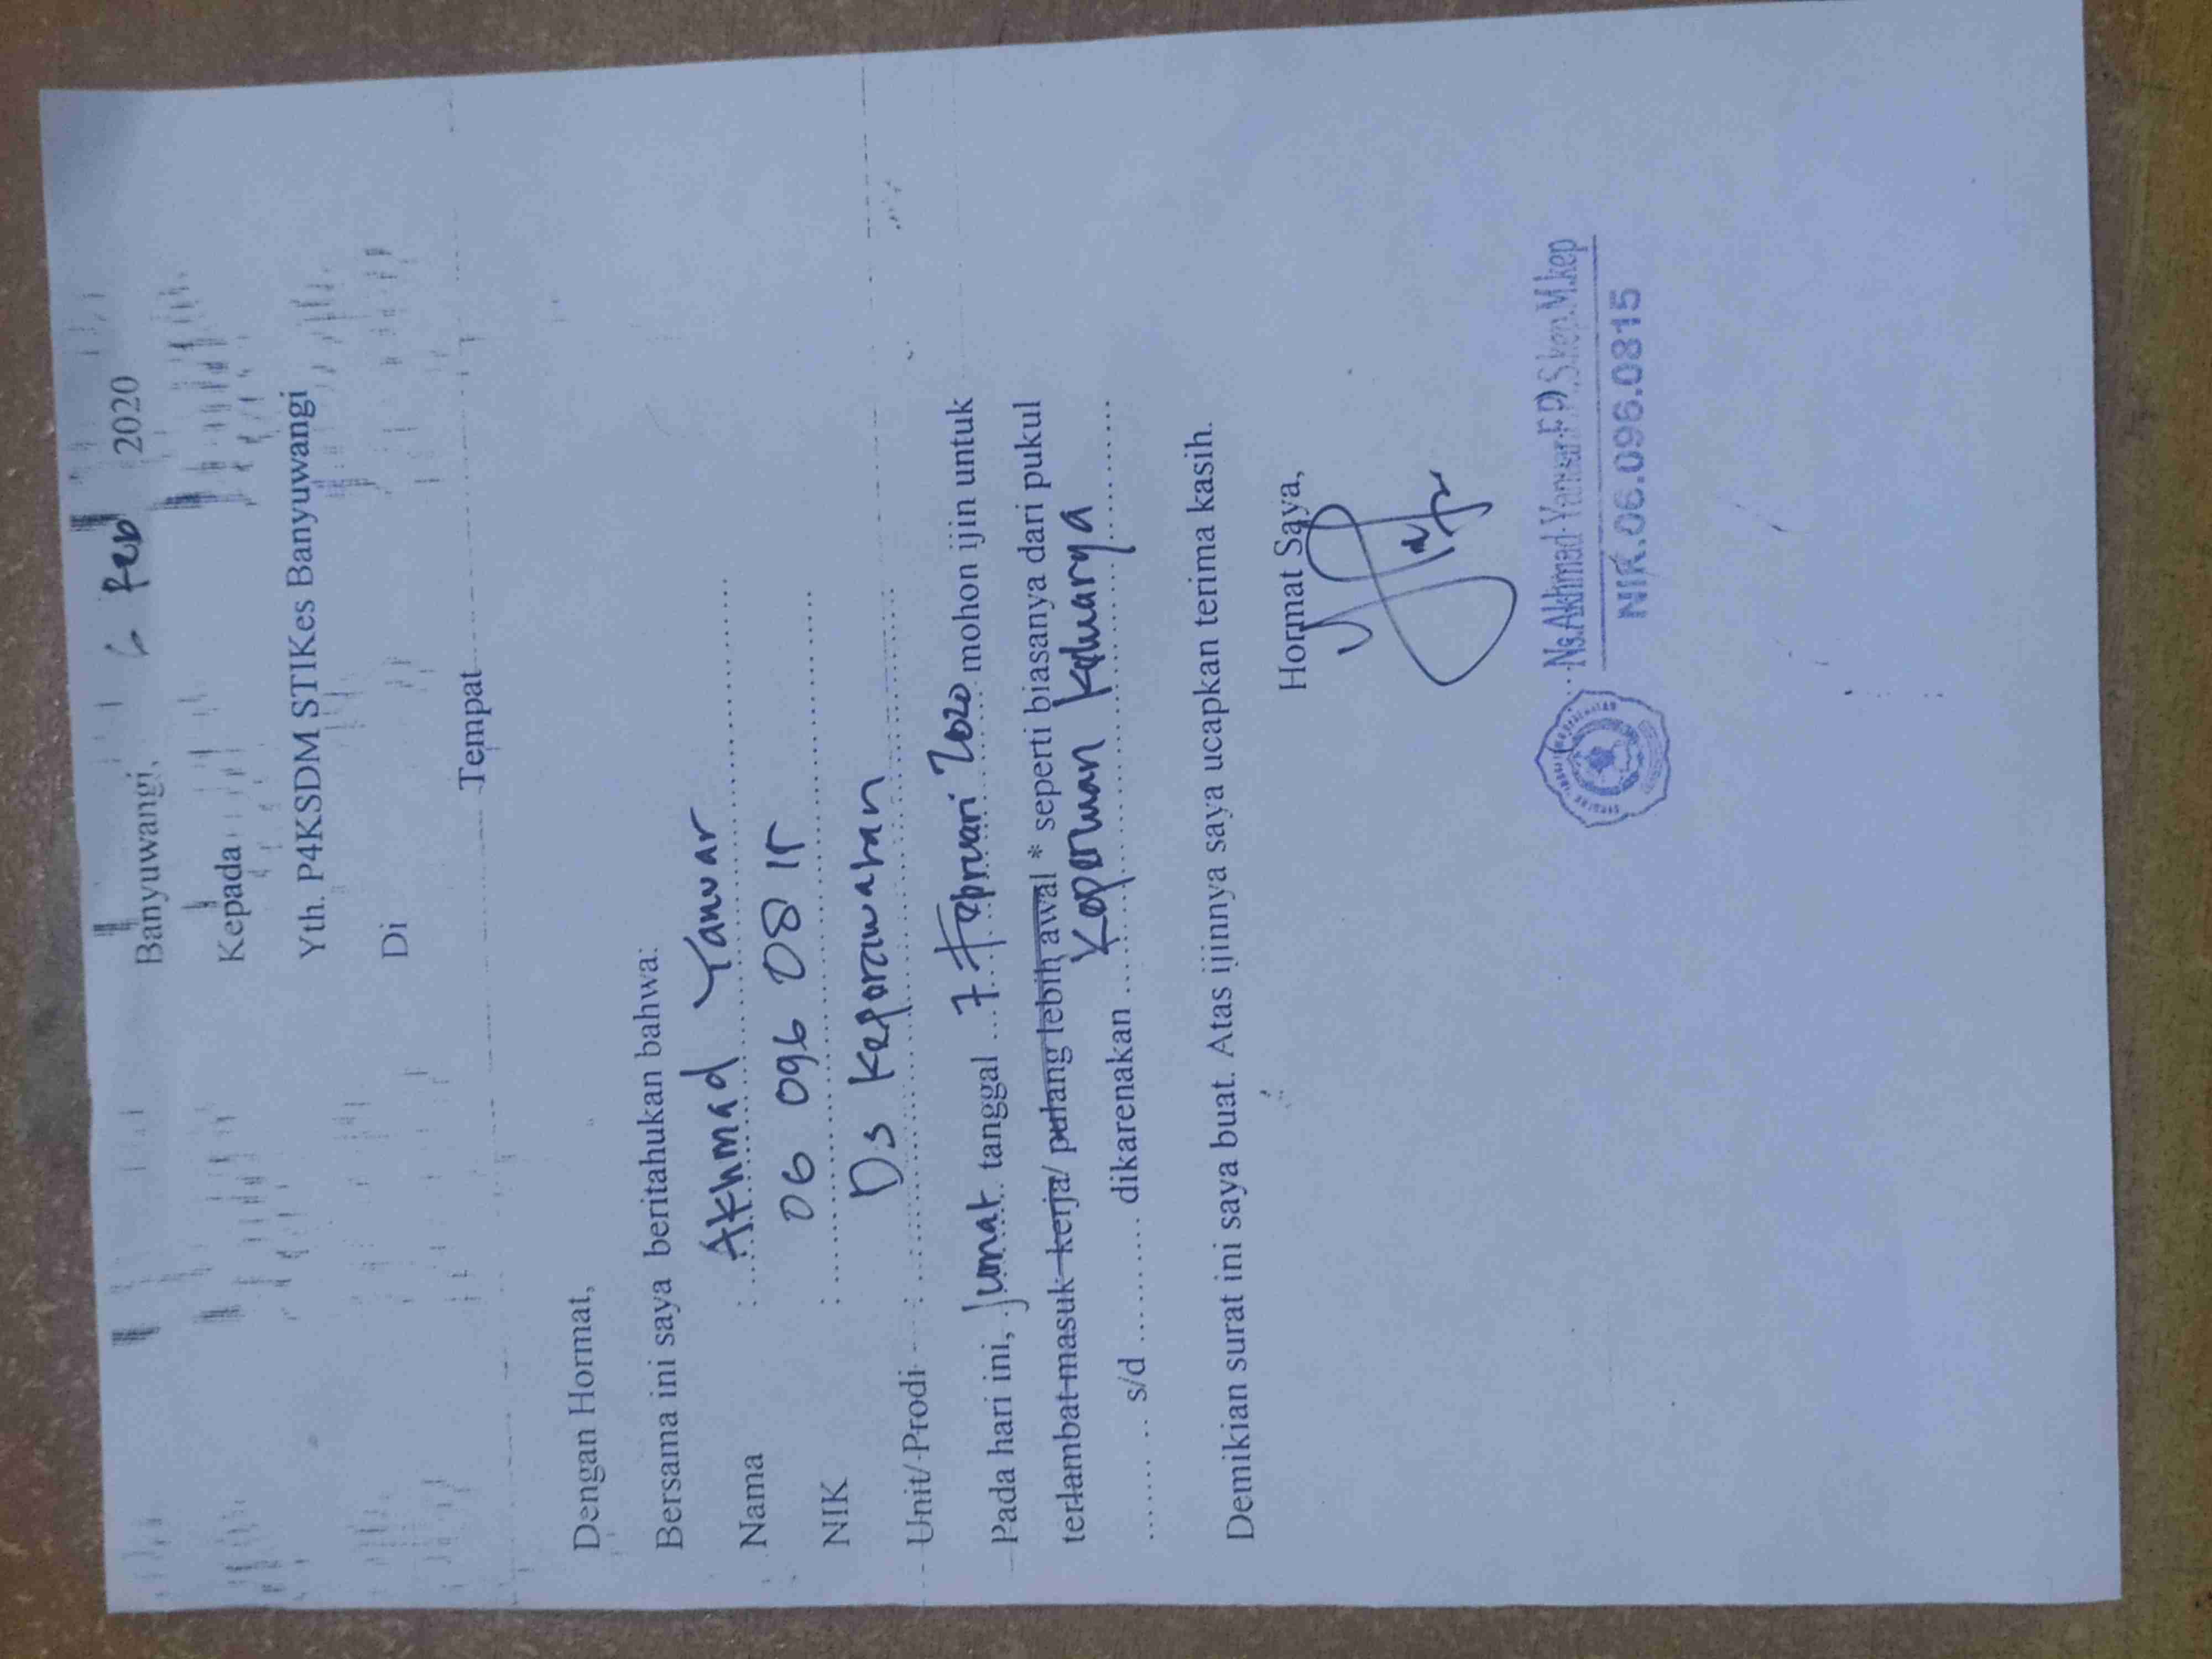 Banyuwangi, 6 Feb 2020
Kepada
Yth. P4KSDM STIKes Banyuwangi
Di
Tempat
Dengan Hormat,
Bersama ini saya beritahukan bahwa:
Nama : Akhmad Yanuar
NIK : 06 096 08 15
Unit/ Prodi : D3 Keperawatan
Pada hari ini, Jumat tanggal 7 Februari 2020 mohon ijin untuk
terlambat masuk kerja/ pulang lebih awal * seperti biasanya dari pukul
....... s/d ......... dikarenakan Keperluan Keluarga
Demikian surat ini saya buat. Atas ijinnya saya ucapkan terima kasih.
Hormat Saya,
Ns.Akhmad Yanuar.F.P, S.kep.M.kep
NIK.06.096.0815